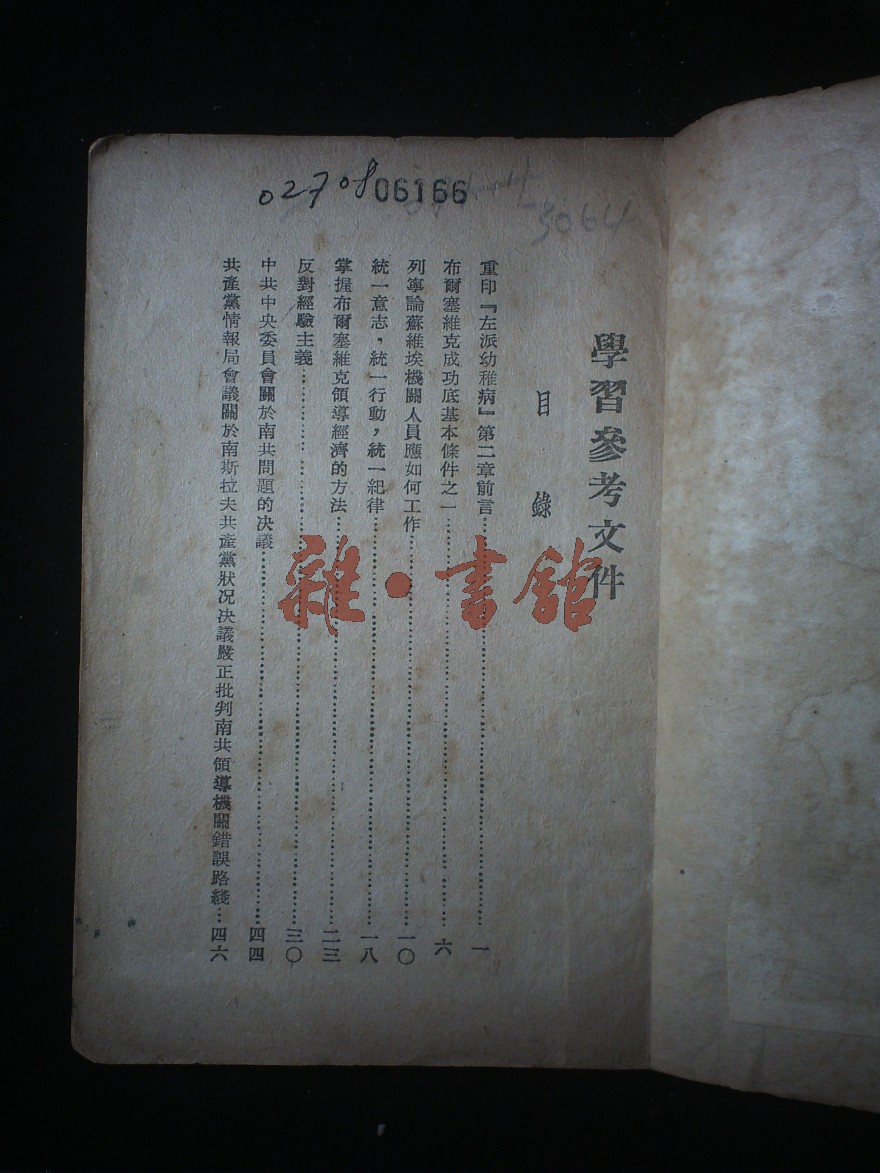 02708 06166
3064
學習參考文件
目錄
重印『左派幼稚病』第二章前言…………一
布爾塞維克成功底基本條件之一…………六
列寧論蘇維埃機關人員應如何工作…………一〇
統一意志，統一行動，統一紀律…………一八
掌握布爾塞維克領導經濟的方法…………二三
反對經驗主義…………三〇
中共中央委員會關於南共問題的決議…………四四
共產黨情報局會議關於南斯拉夫共產黨狀况决議嚴正批判南共領導機關錯誤路綫…四六
雜·書館